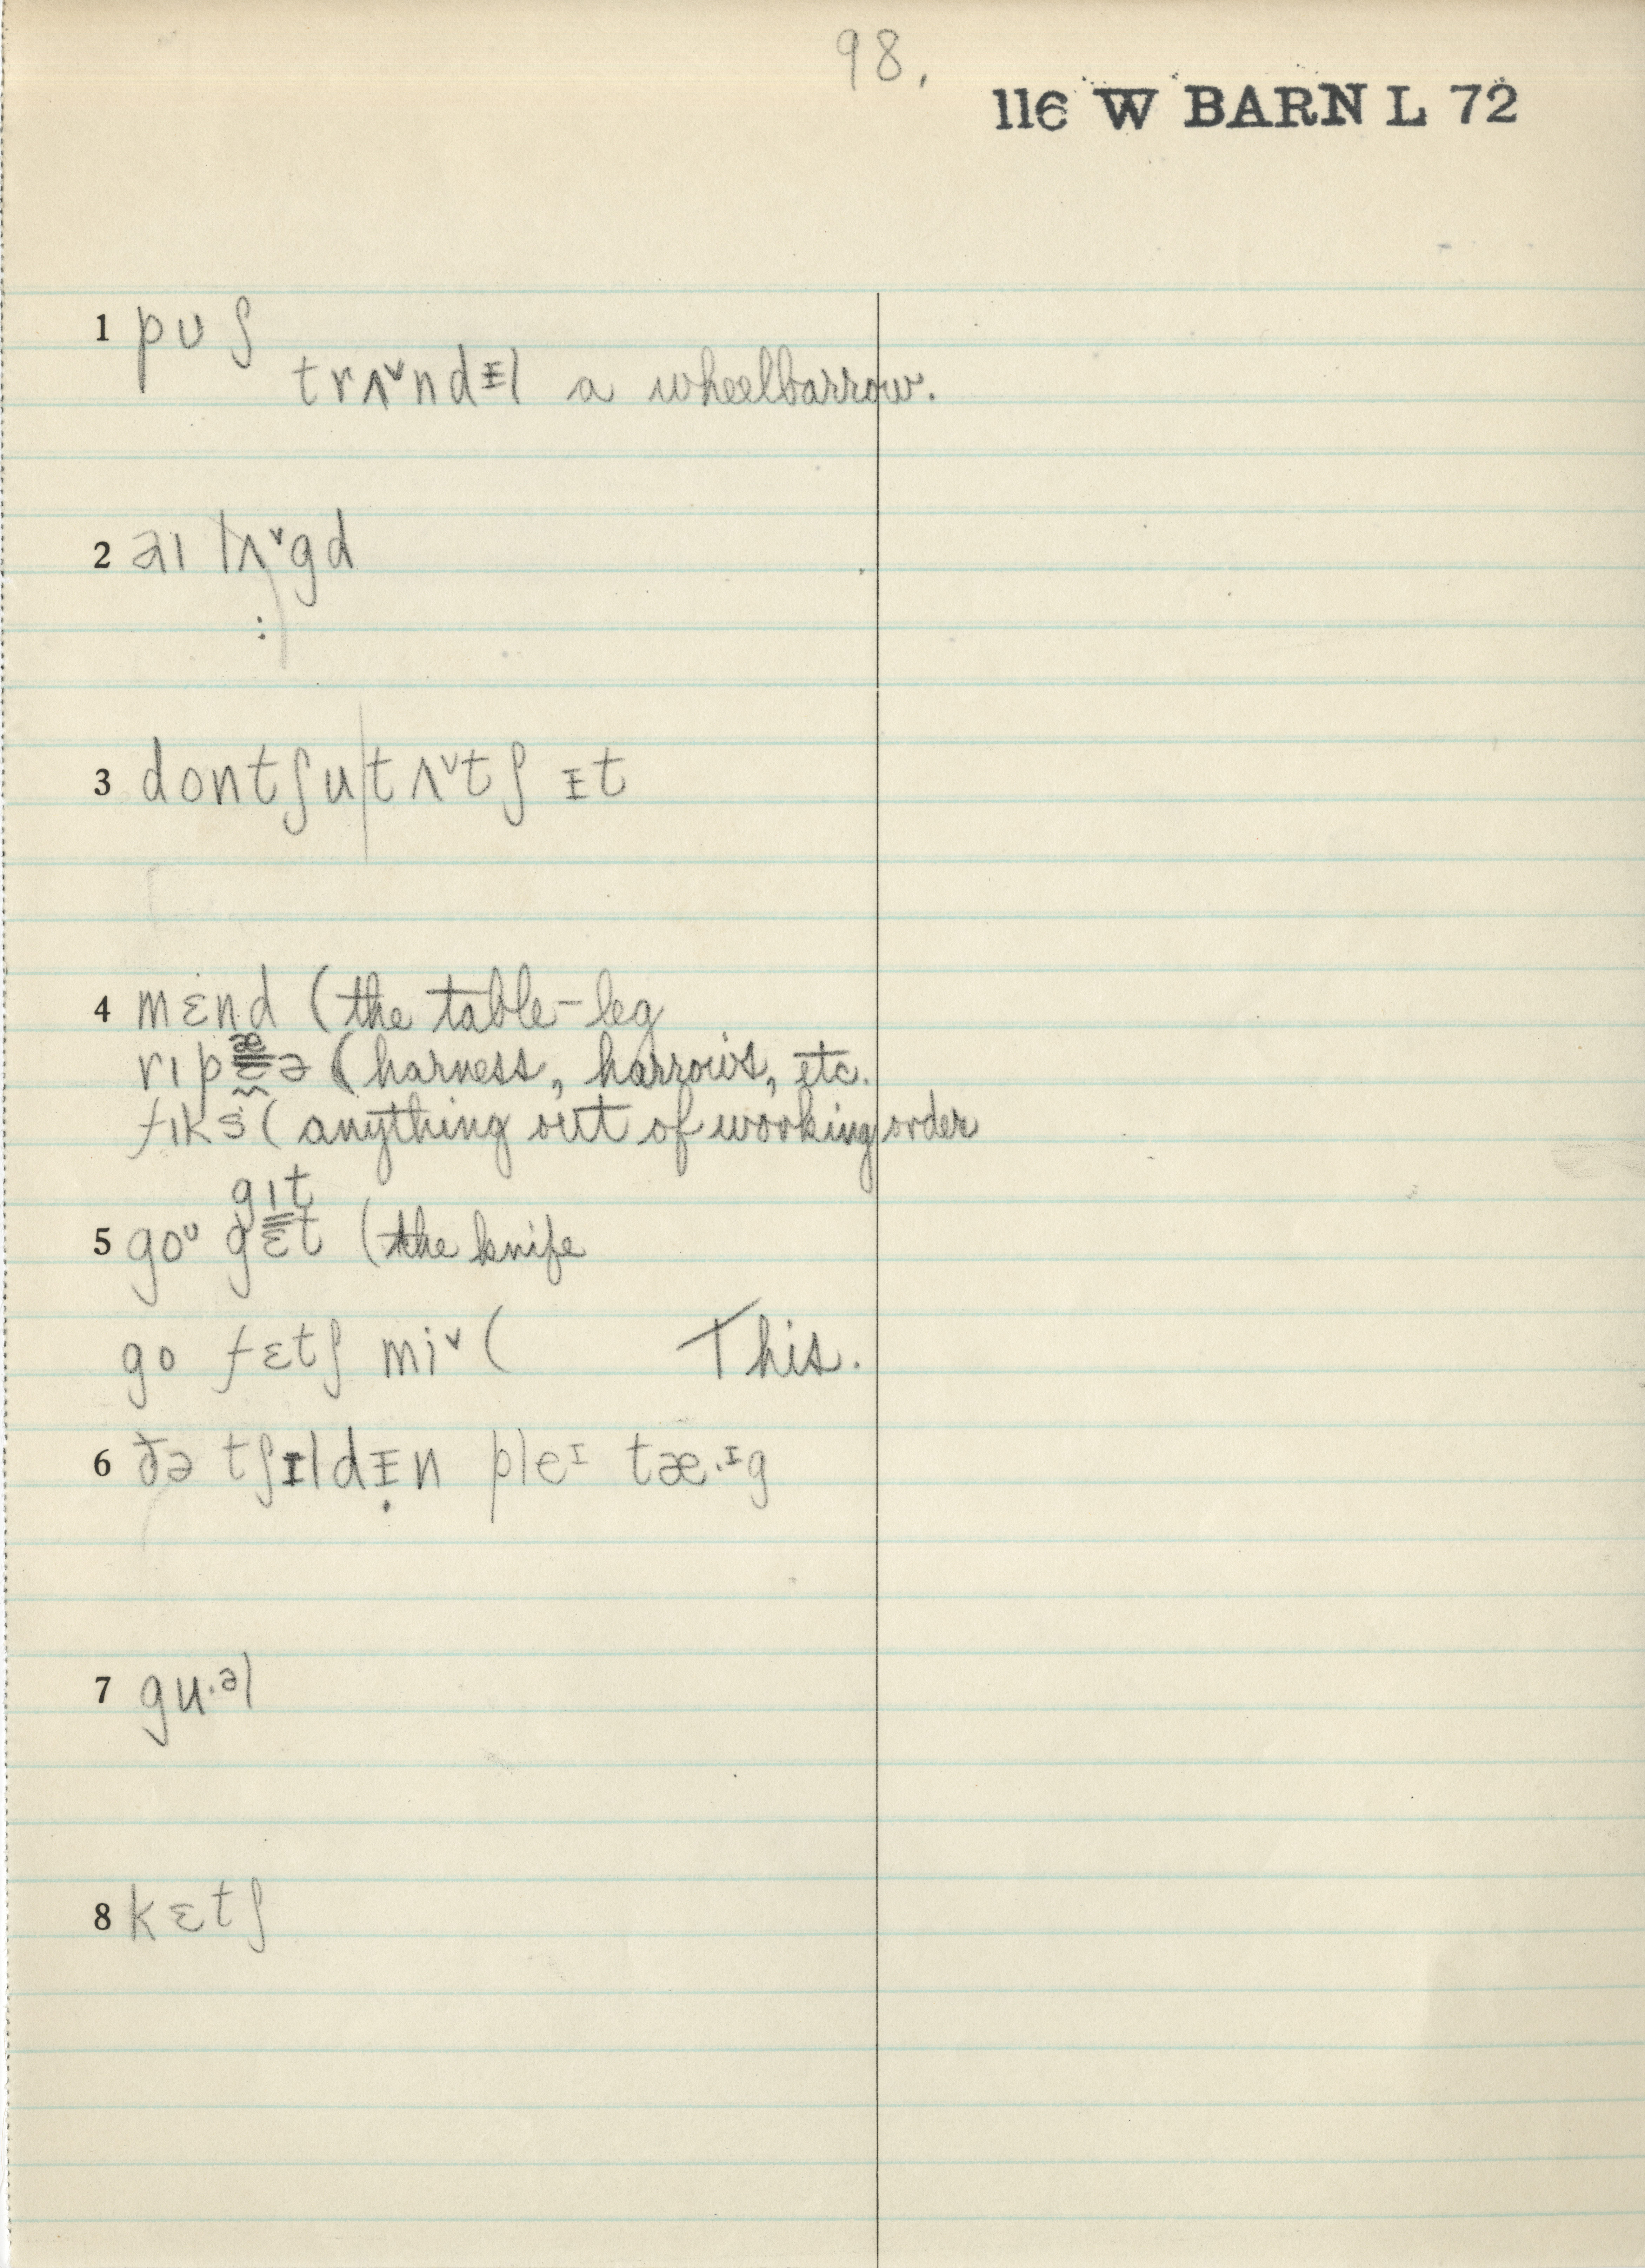 98.
116 W BARN L 72
1 pʊʃ
trʌ˅ndᵻl a wheelbarrow.
2 aɪ lʌ˅gd
:
3 dontʃu|tʌ˅tʃ ᵻt
4 mɛnd (the table-leg
rɪpæ̰ə (harness, harrows, etc.
fɪks (anything out of working order
gɪt
5 goᶷ gɛt (the knife
go fɛtʃ mi˅ ( This.
6 ðə tʃɪldᵻ̣n pleᶦ tæ·ᶦg
7 gu·ᵊl
8 kɛtʃ